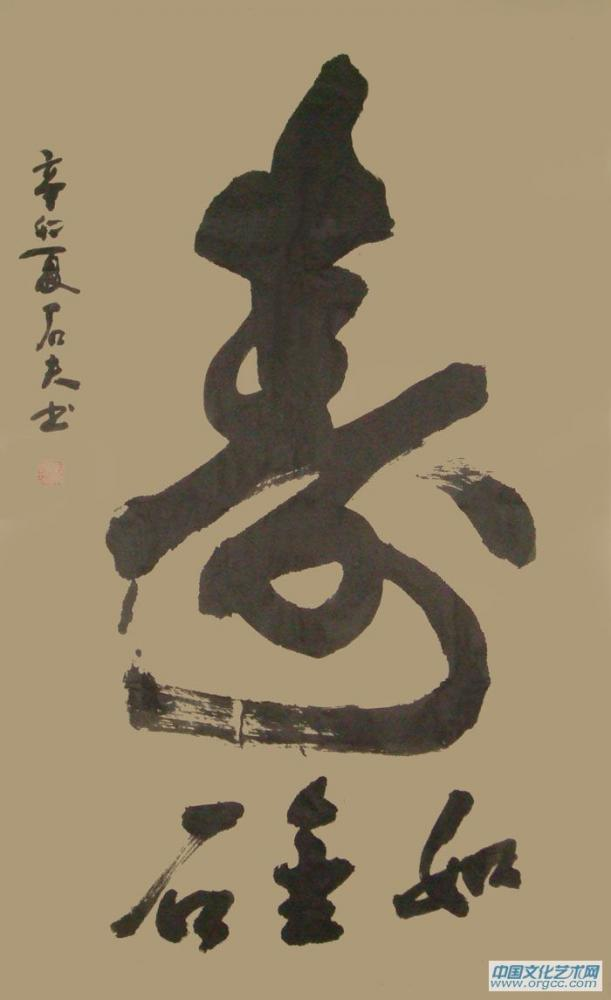 寿
如金石
辛卯夏石夫书
中国文化艺术网
www.orgcc.com